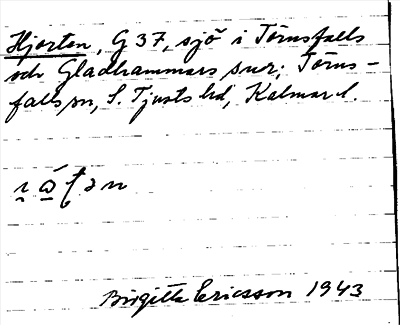 Hjorten, G 37, sjö i Törnsfalls
och Gladhammars snr; Törns-
falls sn, S. Tjusts hd, Kalmar l.
Birgitta Ericsson 1943